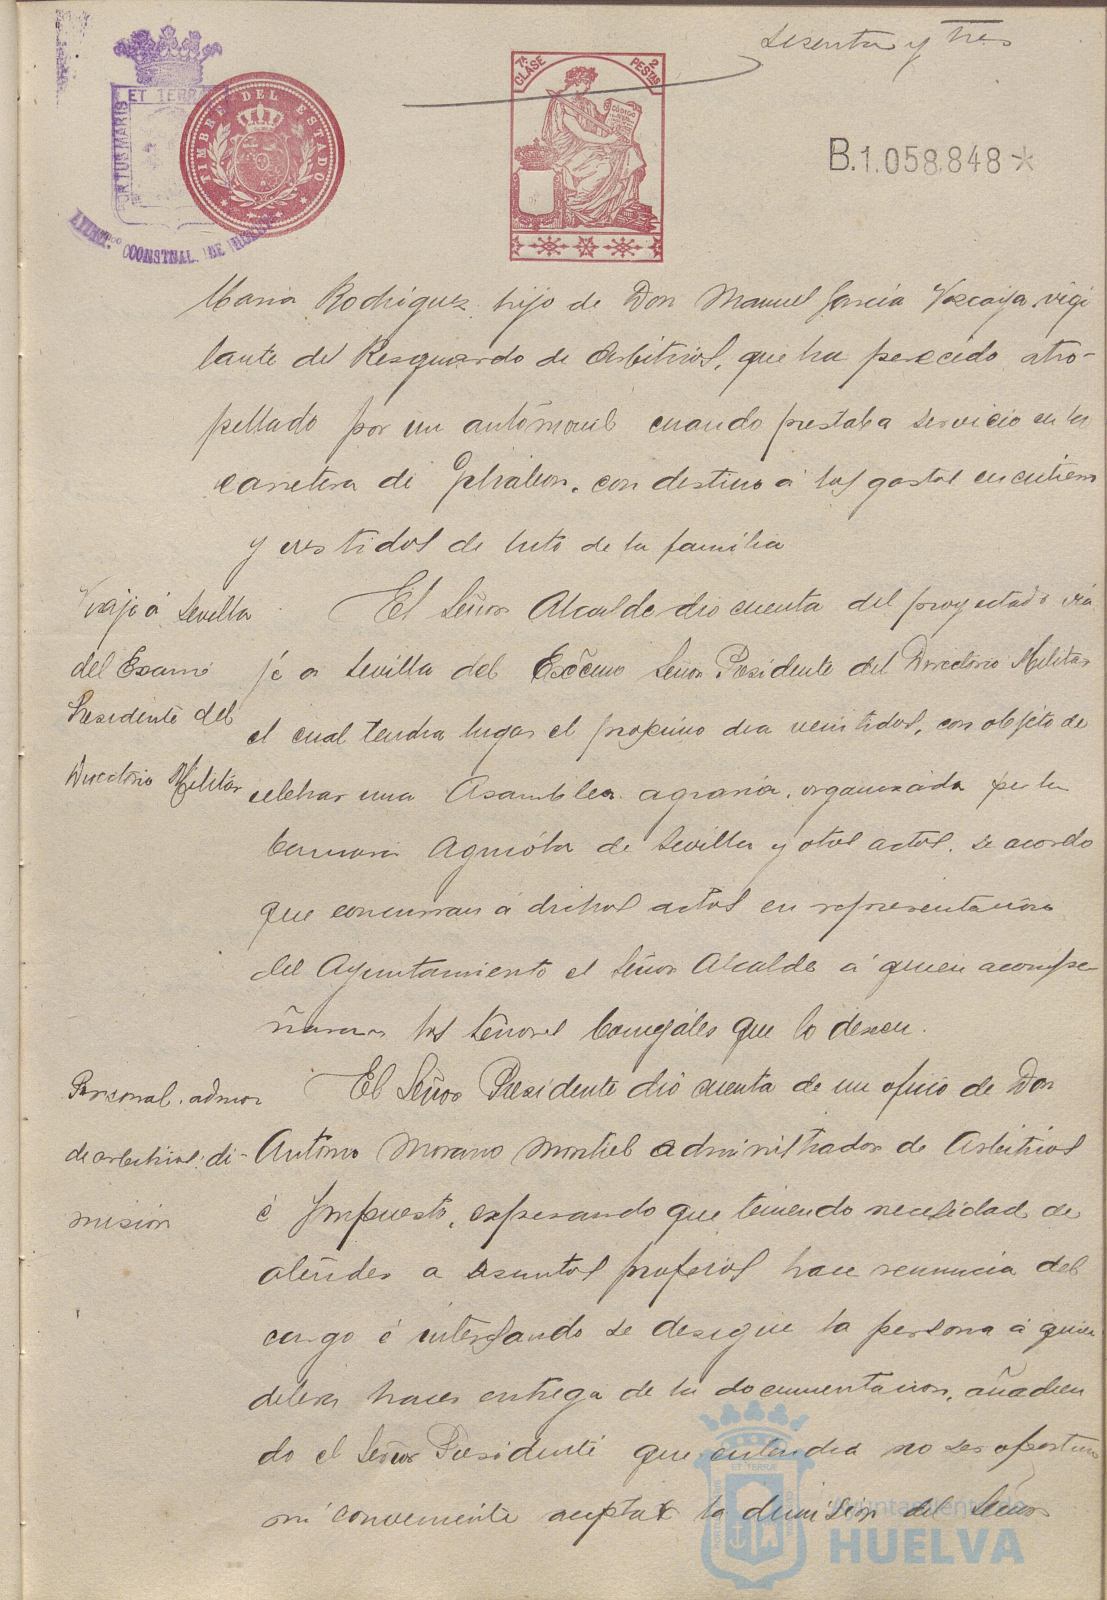 sesenta y tres
7ª CLASE
2 PESTAS
CÓDIGO
TIMBRE DEL ESTADO
PORTUS MARIS ET TERRA
CONSTNAL. DE
B.1.058.848*
Maria Rodriguez hijo de Don Manuel Garcia Vizcaya, vigi
lante del Resguardo de Arbitrios, que ha perecido atro-
pellado por un automovil cuando prestaba servicio en la
carretera de Gibraleon, con destino á los gastos en entierro
y vestidos de luto de la familia
Viaje á Sevilla
del Excmo
Presidente del
Directorio Militar
El Señor Alcalde dio cuenta del proyectado via
je a Sevilla del Excmo Señor Presidente del Directorio Militar
el cual tendra lugar el proximo dia veintidos, con objeto de
celebrar una Asamblea agraria, organizada por la
Camara Agricola de Sevilla y otros actos, se acordo
que concurran á dichos actos en representacion
del Ayuntamiento el Señor Alcalde á quien acompa
ñaran los señores Concejales que lo deseen.
Personal. admor
de arbitrios: di-
misión
El Señor Presidente dió cuenta de un oficio de Don
Antonio Morano Montiel administrador de Arbitrios
é Impuesto, expresando que teniendo necesidad de
atender a asuntos propios hace renuncia del
cargo é interesando se designe la persona á quien
debera hacer entrega de la documentacion, añadien
do el Señor Presidente que entendia no ser oportuno
ni conveniente aceptar la dimision del Señor
Ayuntamiento de
HUELVA